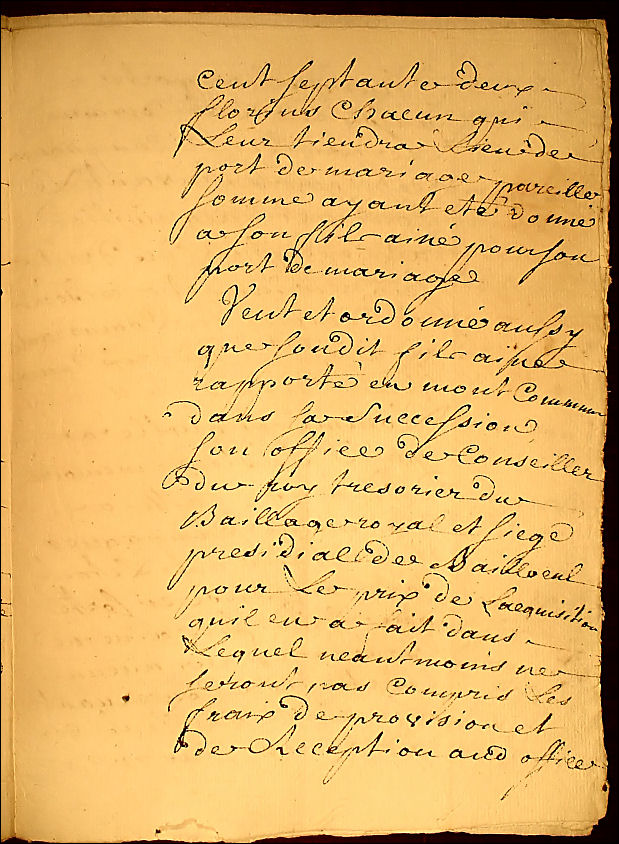 cent septante deux
florins Chacun qui
Leur tiendra Lieu de
port de mariage pareille
somme ayant eté donné
a son fils ainé pour son
port de mariage
Veut et ordonne aussy
que sondit fils ainé
rapporte en mont Commun
dans sa Succession
son office de Conseiller
du roy tresorier du
Baillage royal et siege
presidial de Bailloeul
pour Le prix de Lacquisition
quil en a fait dans
Lequel neantmoins ne
seront pas Compris Les
fraix de provision et
de Reception aud office